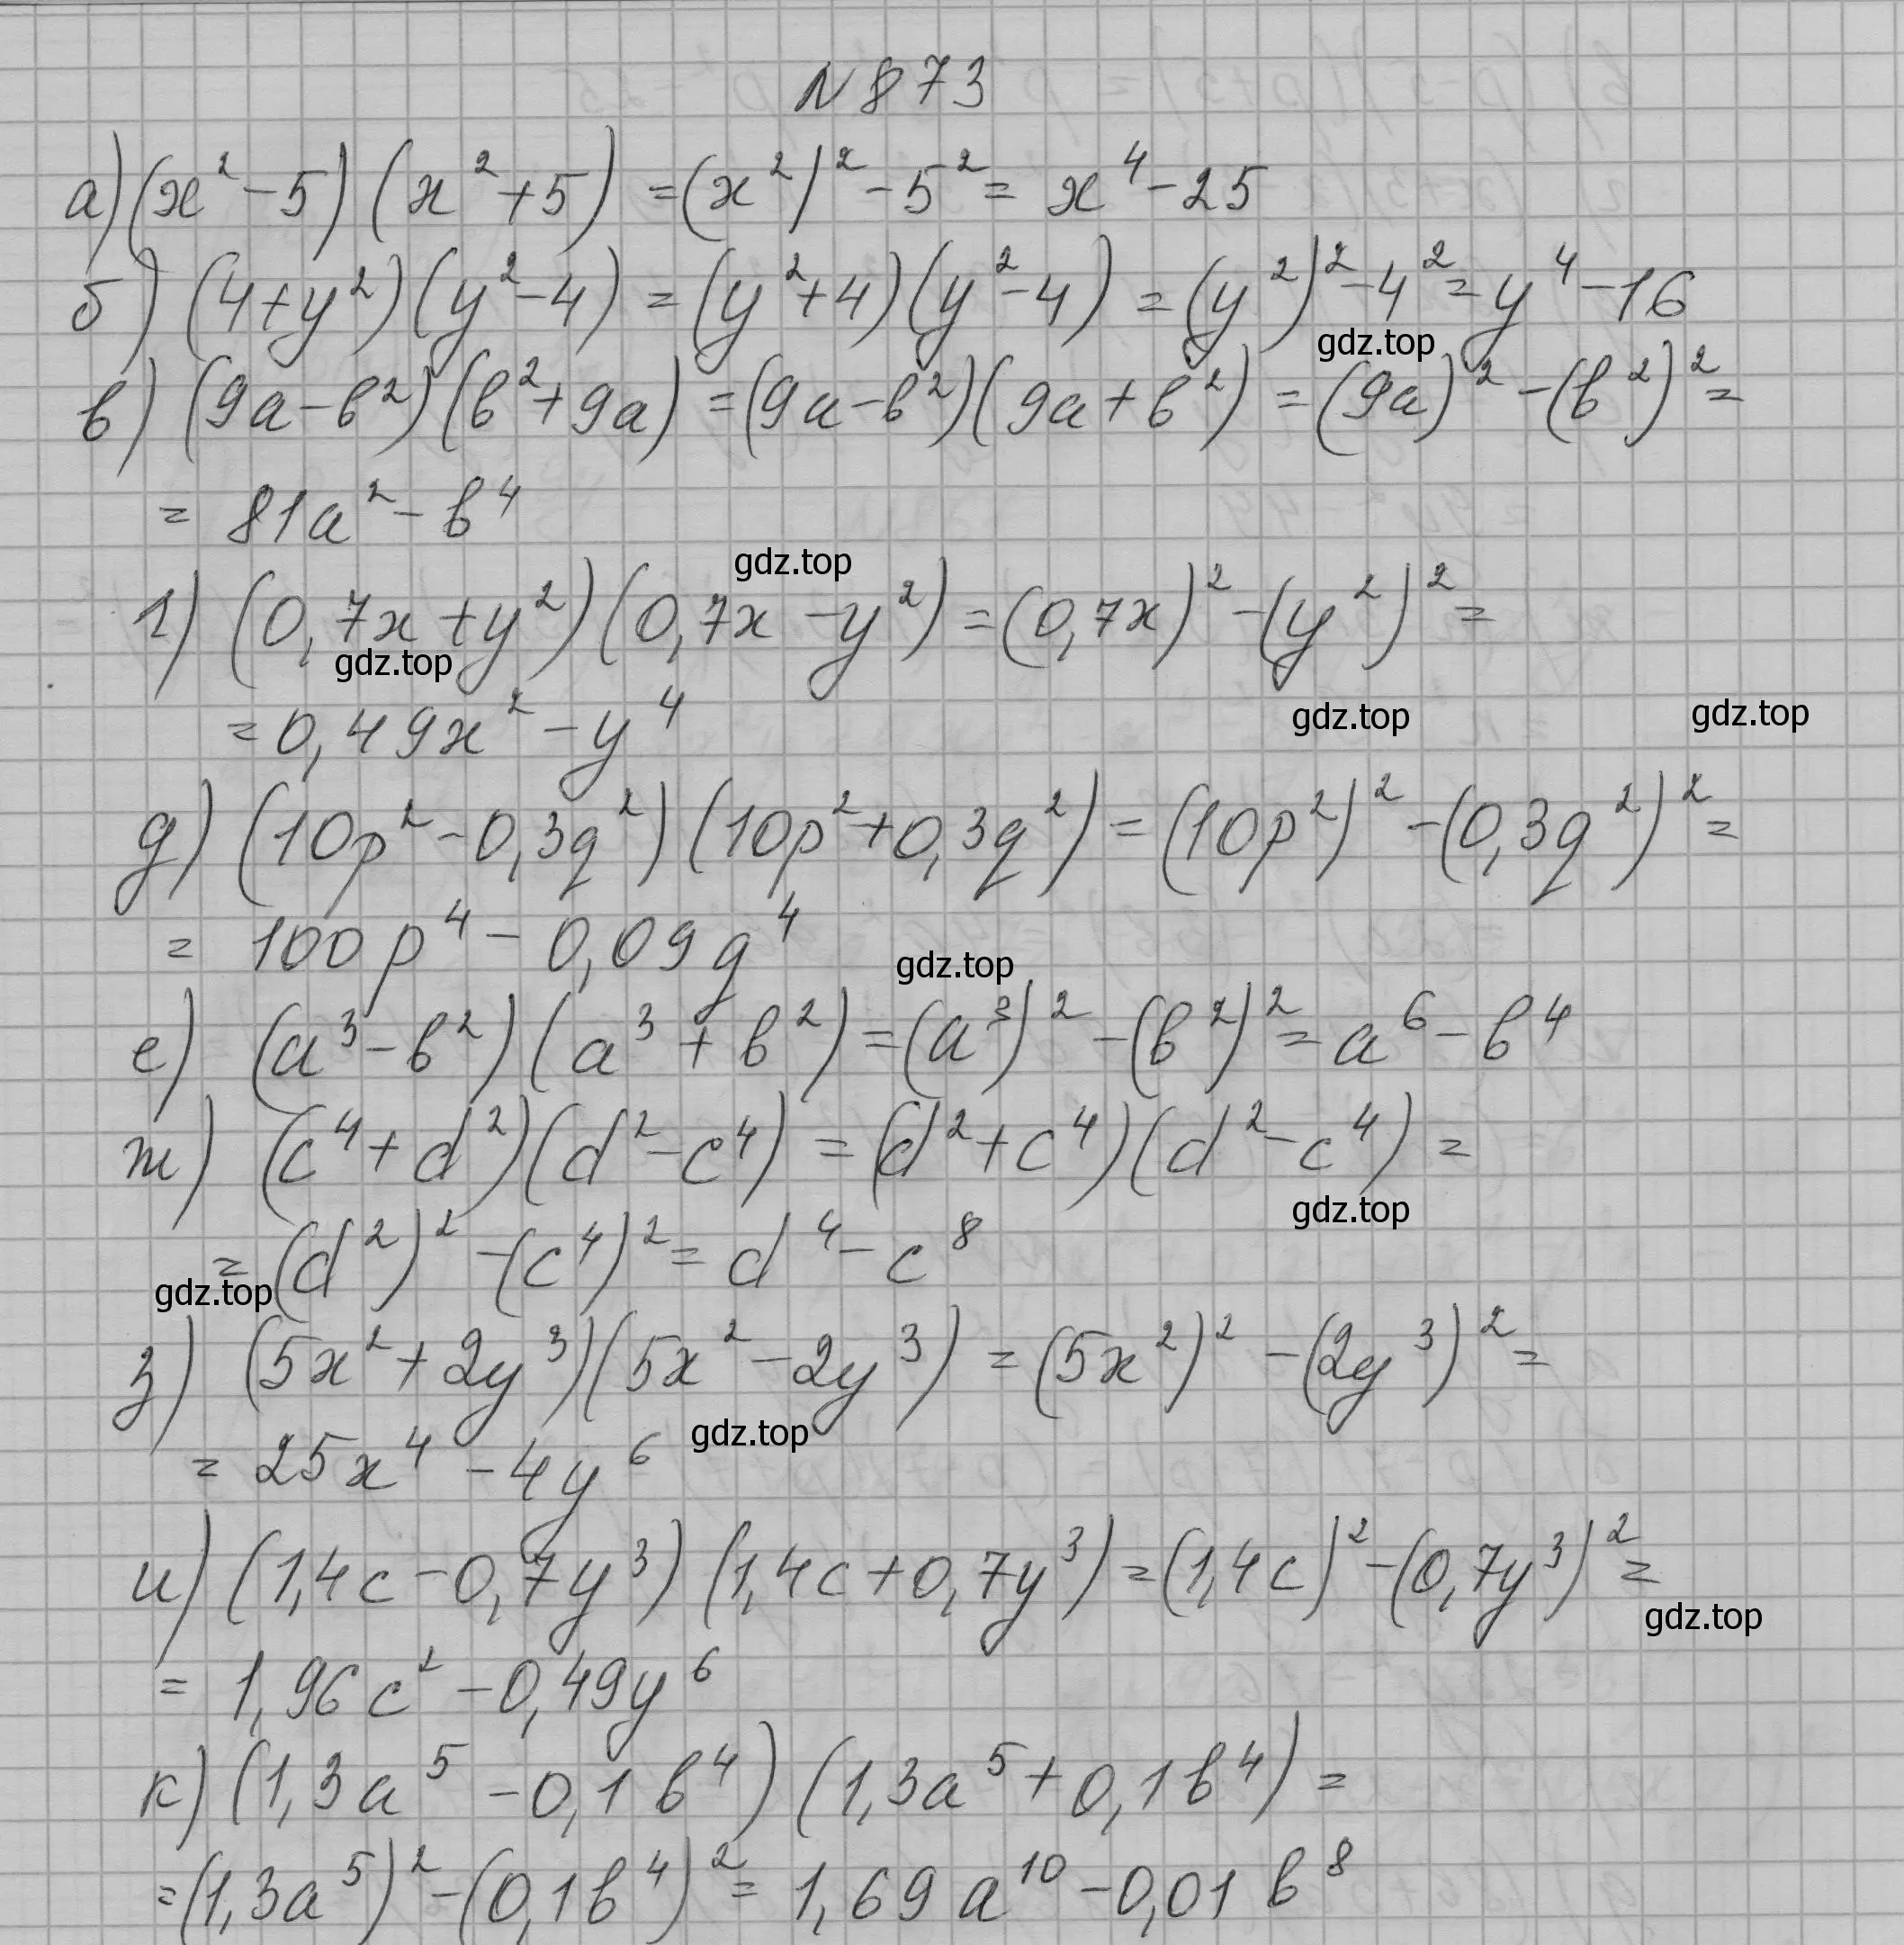 N 873
а) (x² - 5) (x² + 5) = (x²)² - 5² = x⁴ - 25
б) (4 + y²) (y² - 4) = (y² + 4) (y² - 4) = (y²)² - 4² = y⁴ - 16
gdz.top
в) (9a - b²) (b² + 9a) = (9a - b²) (9a + b²) = (9a)² - (b²)² =
= 81a² - b⁴
gdz.top
г) (0,7x + y²) (0,7x - y²) = (0,7x)² - (y²)² =
gdz.top
gdz.top
gdz.top
= 0,49x² - y⁴
д) (10p² - 0,3q²) (10p² + 0,3q²) = (10p²)² - (0,3q²)² =
= 100p⁴ - 0,09q⁴
gdz.top
е) (a³ - b²) (a³ + b²) = (a³)² - (b²)² = a⁶ - b⁴
ж) (c⁴ + d²) (d² - c⁴) = (d² + c⁴) (d² - c⁴) =
gdz.top
= (d²)² - (c⁴)² = d⁴ - c⁸
gdz.top
з) (5x² + 2y³) (5x² - 2y³) = (5x²)² - (2y³)² =
gdz.top
= 25x⁴ - 4y⁶
и) (1,4c - 0,7y³) (1,4c + 0,7y³) = (1,4c)² - (0,7y³)² =
gdz.top
= 1,96c² - 0,49y⁶
к) (1,3a⁵ - 0,1b⁴) (1,3a⁵ + 0,1b⁴) =
= (1,3a⁵)² - (0,1b⁴)² = 1,69a¹⁰ - 0,01b⁸